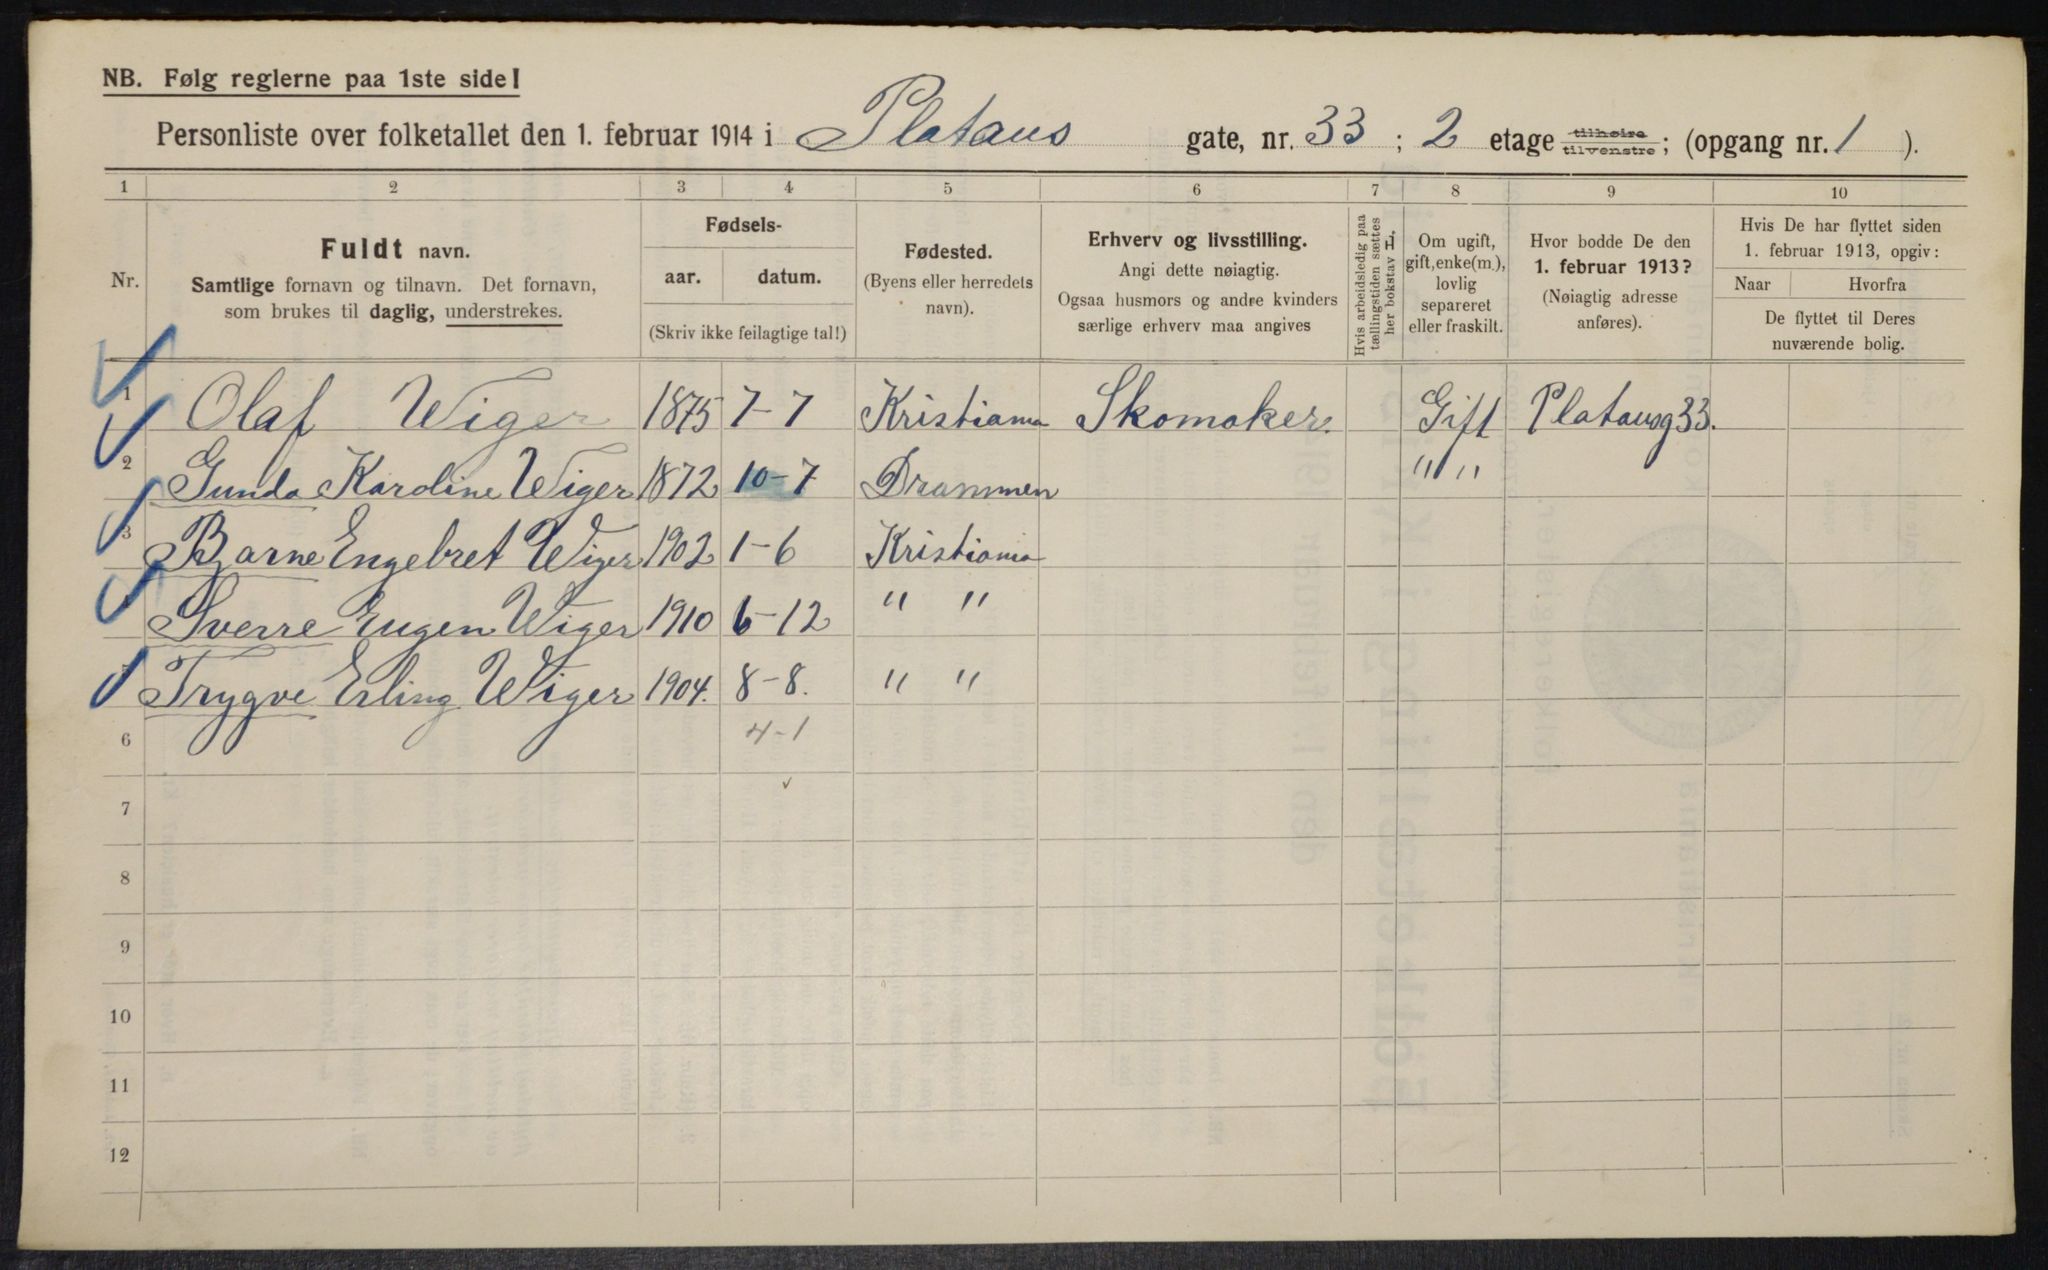 NB. Følg reglerne paa 1ste side!
Personliste over folketallet den 1. februar 1914 i Platous gate, nr. 33; 2 etage tilhøire tilvenstre; (opgang nr. 1).
1 2 3 4 5 6 7 8 9 10
Nr.
Fuldt navn.
Samtlige fornavn og tilnavn. Det fornavn,
som brukes til daglig, understrekes.
Fødsels-
aar. datum.
(Skriv ikke feilagtige tal!)
Fødested.
(Byens eller herredets
navn).
Erhverv og livsstilling.
Angi dette nøiagtig.
Ogsaa husmors og andre kvinders
særlige erhverv maa angives
Hvis arbeidsledig paa
tællingstiden sættes
her bokstav L.
Om ugift,
gift, enke(m.),
lovlig
separeret
eller fraskilt.
Hvor bodde De den
1. februar 1913?
(Nøiagtig adresse
anføres).
Hvis De har flyttet siden
1. februar 1913, opgiv:
Naar Hvorfra
De flyttet til Deres
nuværende bolig.
1 Olaf Wiger 1875 7-7 Kristiania Skomaker. Gift Platousg 33.
2 Gunda Karoline Wiger 1872 10-7 Drammen " "
3 Bjarne Engebret Wiger 1902 1-6 Kristiania
Sverre Eugen Wiger 1910 6-12 " "
Trygve Erling Wiger 1904. 8-8. " "
6 4-1
7
8
9
10
11
12